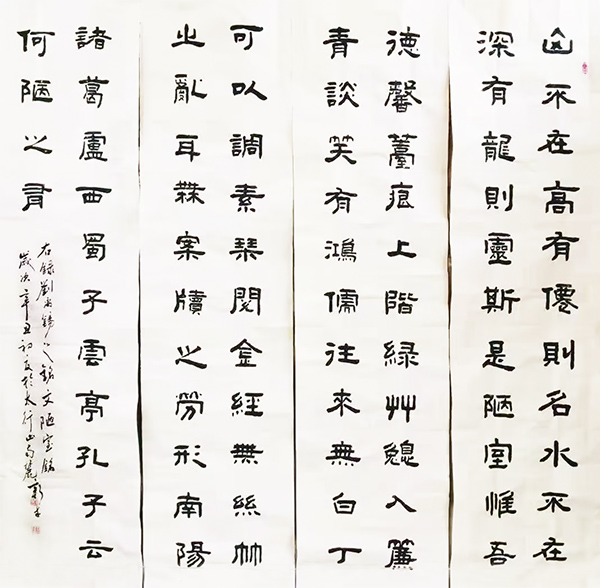 山不在高有僊則名水不在
深有龍則靈斯是陋室惟吾
德馨薹痕上階緑艸入簾
青談笑有鴻儒往來無白丁
可以調素琹閱金經無絲竹
之亂耳無案牘之勞形南陽
諸葛廬西蜀子雲亭孔子云
何陋之有
右錄劉禹錫之銘文陋室銘
歲次辛丑初夏於太行山南麓